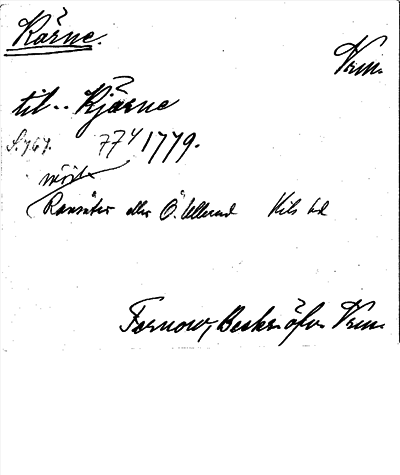 Kärne.
Vrm.
til.. Kjärne
S. 767. 774 1779.
Ransäter eller Ö. Ullerud Kils hd
Fernow, Beskr. öfv. Vrm.